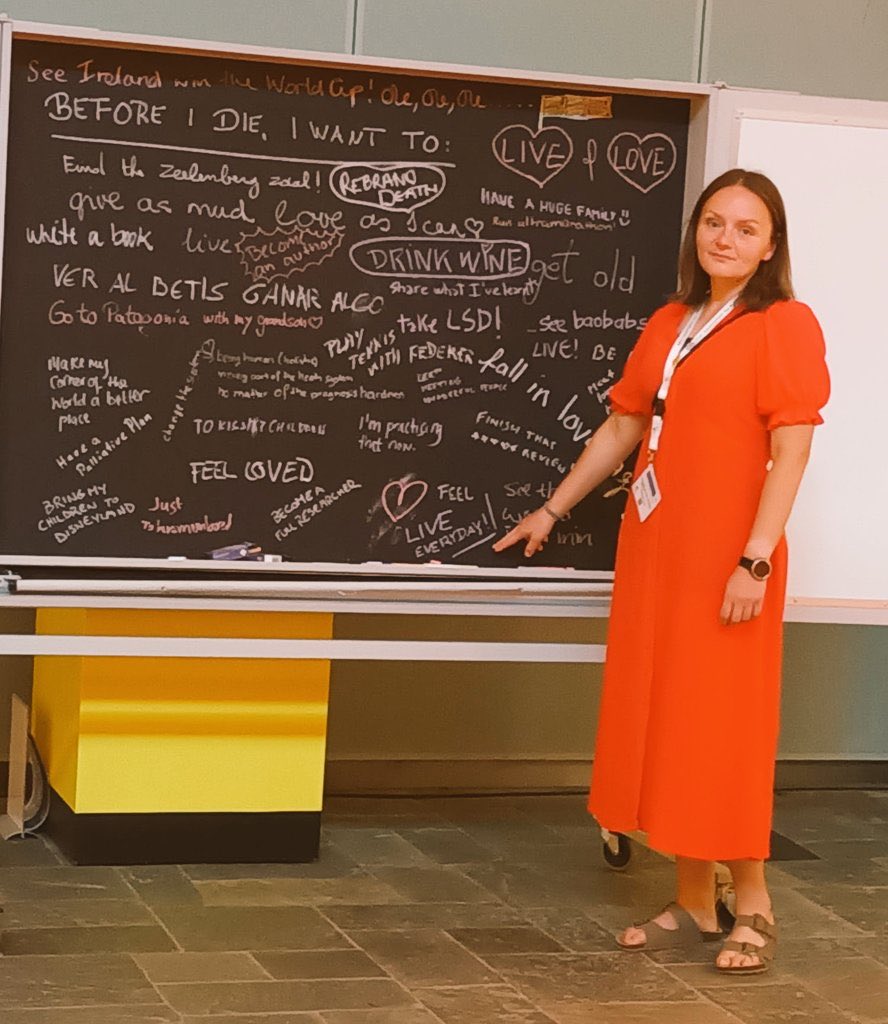 See Ireland win the World Cup! Ole, Ole, Ole.....
BEFORE I DIE, I WANT TO:
LIVE & LOVE
Find the Zeelenberg zaal!
REBRAND
DEATH
HAVE A HUGE FAMILY
Run ultramarathon!
give as mud love as I can
write a book
live
Become
an author
DRINK WINE
get old
share what I've learnt
VER AL BETIS GANAR ALGO
Go to Patagonia with my grandson
take LSD!
see baobabs
PLAY
TENNIS
WITH FEDERER
LIVE! BE
fall in love
Make my
corner of the
world a better
place
change the system
being human (holistic)
being part of the health system
no matter of the prognosis hardness
LEE
MEETING
WONDERFUL PEOPLE
Have a
Palliative Plan
TO KISS MY CHILDREN
I'm practising
that now.
FINISH THAT
REVIEW
FEEL LOVED
BRING MY
CHILDREN TO
DISNEYLAND
Just
to be remembered
BECOME A
FULL RESEARCHER
FEEL
LIVE
EVERYDAY!!
See